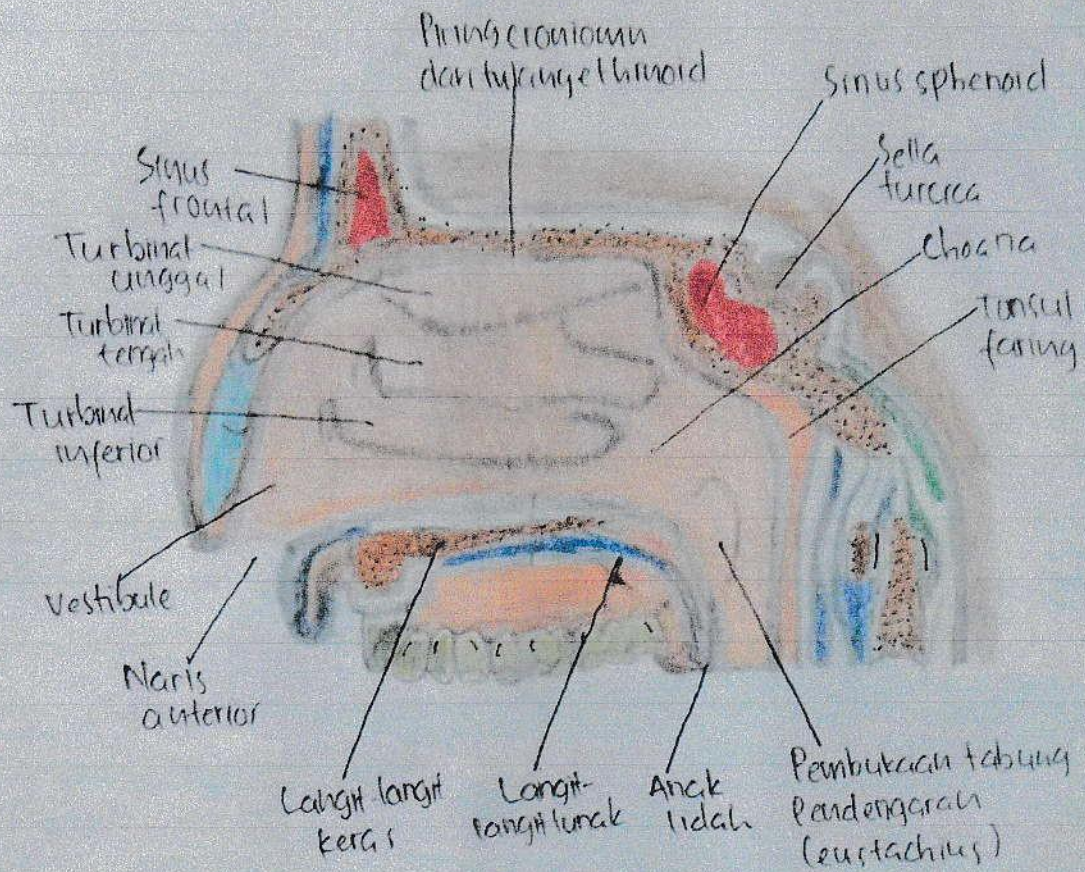 Piring craniown
dari tulang ethmoid
Sinus sphenoid
Sella
turcica
Choana
Tonsul
faring
Sinus
frontal
Turbinal
unggal
Turbinal
tengah
Turbinal
inferior
Vestibule
Naris
anterior
Langit-langit
keras
Langit-
langit lunak
Anak
lidah
Pembukaan tabung
Pendengaran
(eustachius)